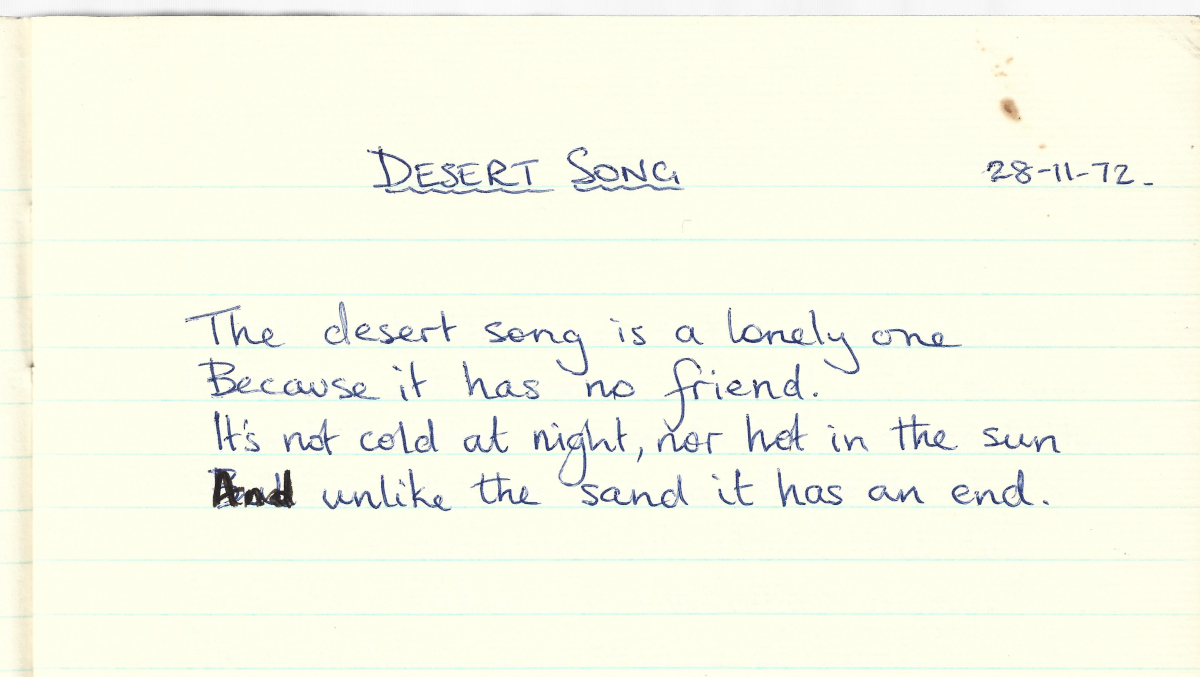 DESERT SONG 28-11-72.
The desert song is a lonely one
Because it has no friend.
It's not cold at night, nor hot in the sun
And unlike the sand it has an end.